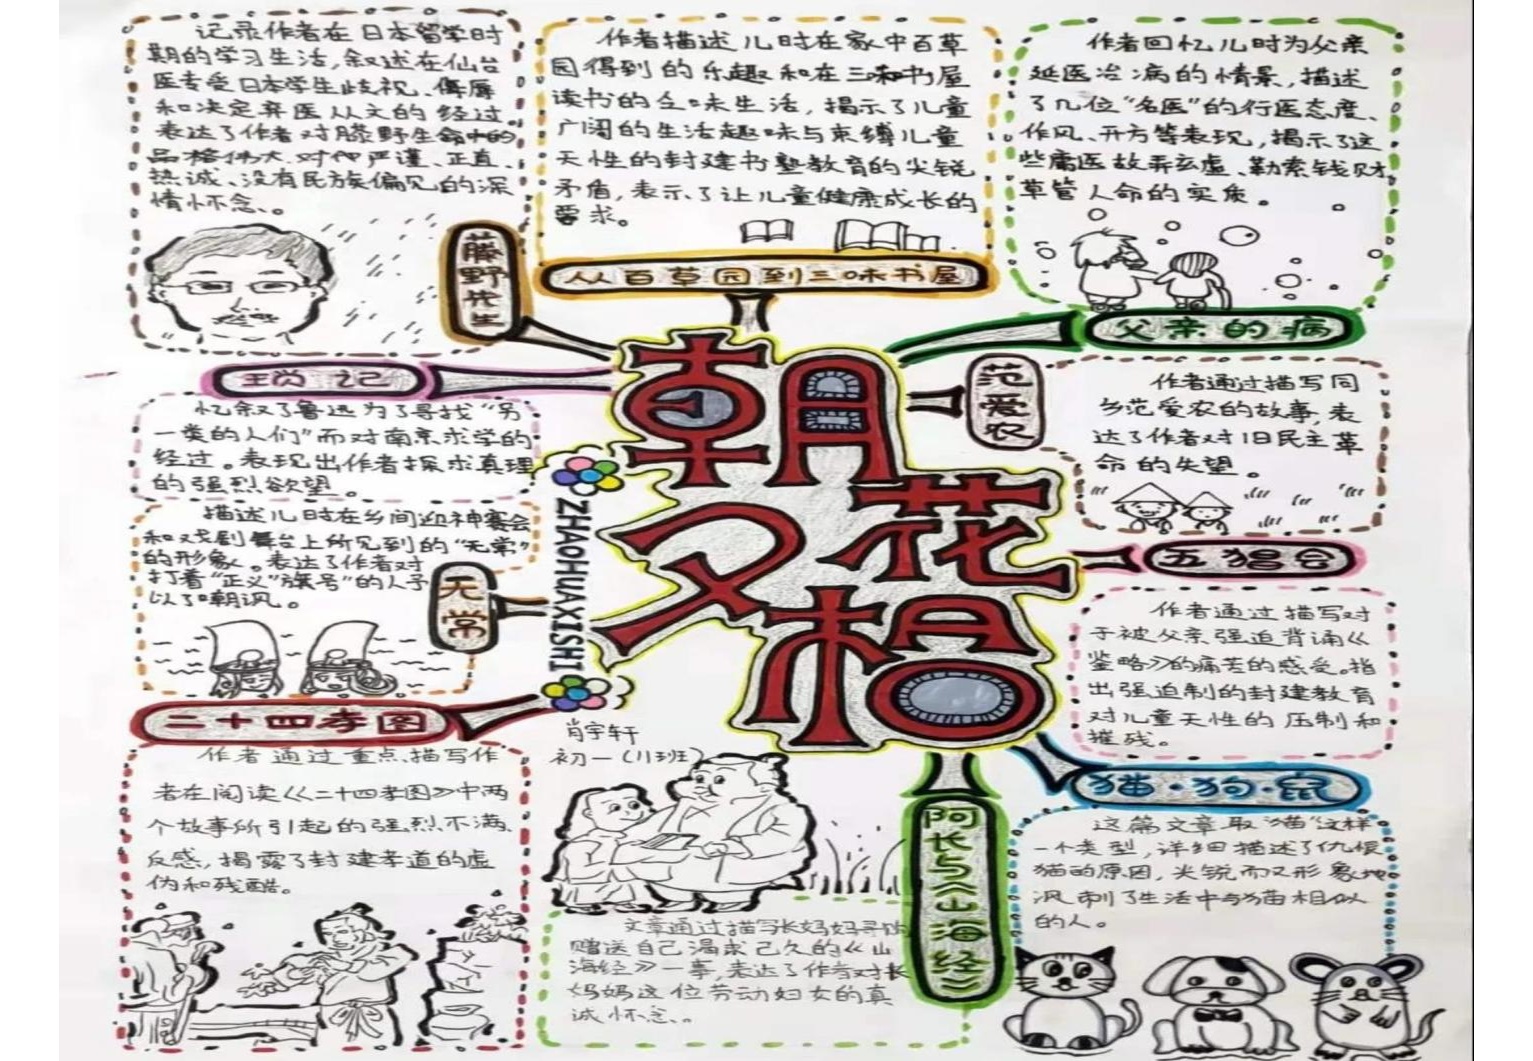 记录作者在日本留学时
期的学习生活,叙述在仙台
医专受日本学生歧视、侮辱
和决定弃医从文的经过。
表达了作者对藤野先生命中的
品格伟大.对他严谨、正直、
热诚、没有民族偏见的深
情怀念。
藤野先生
作者描述儿时在家中百草
园得到的乐趣和在三味书屋
读书的乏味生活,揭示了儿童
广阔的生活趣味与束缚儿童
天性的封建书塾教育的尖锐
矛盾,表示了让儿童健康成长的
要求。
从百草园到三味书屋
作者回忆儿时为父亲
延医治病的情景,描述
了几位“名医”的行医态度、
作风、开方等表现,揭示了这
些庸医故弄玄虚、勒索钱财
草管人命的实质。
父亲的病
琐记
忆叙了鲁迅为了寻找“另
一类的人们”而对南京求学的
经过。表现出作者探求真理
的强烈欲望。
范爱农
作者通过描写同
乡范爱农的故事,表
达了作者对旧民主革
命的失望。
朝花夕拾
ZHAOHUAXISHI
描述儿时在乡间迎神赛会
和戏剧舞台上所见到的“无常”
的形象。表达了作者对
打着“正义”旗号”的人予
以了嘲讽。
无常
五猖会
作者通过描写对
于被父亲强迫背诵《
鉴略》的痛苦的感受。指
出强迫制的封建教育
对儿童天性的压制和
摧残。
二十四孝图
作者通过重点描写作
者在阅读《二十四孝图》中两
个故事所引起的强烈不满、
反感,揭露了封建孝道的虚
伪和残酷。
肖宇轩
初一(11班)
猫·狗·鼠
这篇文章取“猫”这样
一个类型,详细描述了仇恨
猫的原因,尖锐而又形象地
讽刺了生活中与猫相似
的人。
阿长与《山海经》
文章通过描写长妈妈寻购
赠送自己渴求已久的《山
海经》一事,表达了作者对长
妈妈这位劳动妇女的真
诚怀念。